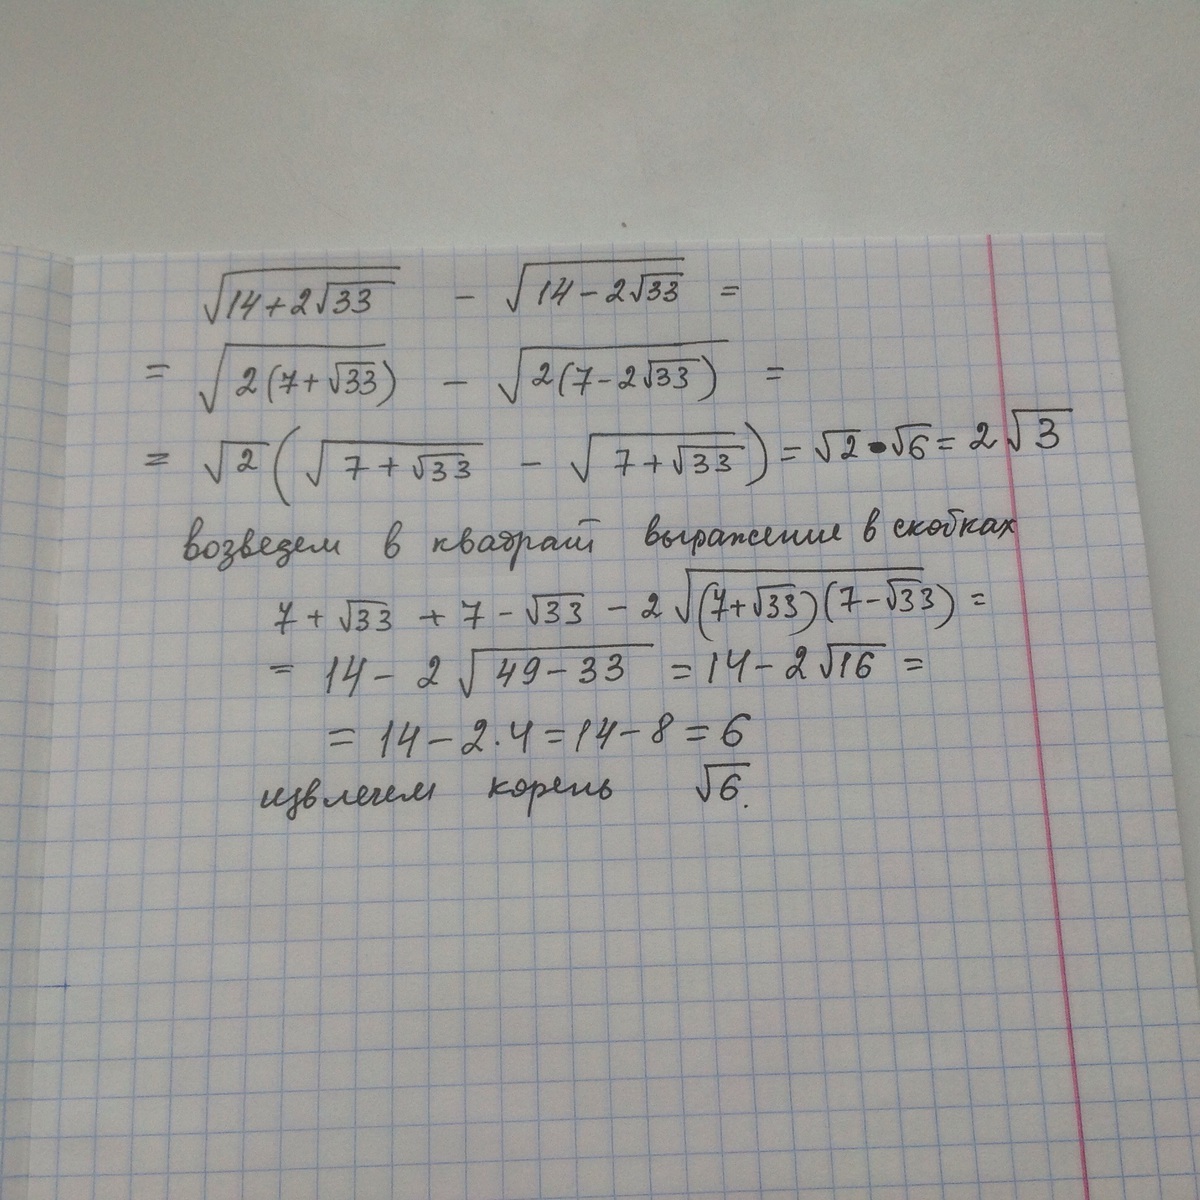 √(14+2√33) - √(14-2√33) =
= √(2(7+√33)) - √(2(7-2√33)) =
= √2(√(7+√33) - √(7+√33)) = √2•√6 = 2√3
возведем в квадрат выражение в скобках
7+√33 + 7-√33 - 2√((7+√33)(7-√33)) =
= 14 - 2√(49-33) = 14 - 2√16 =
= 14-2·4=14-8=6
извлечем корень √6.